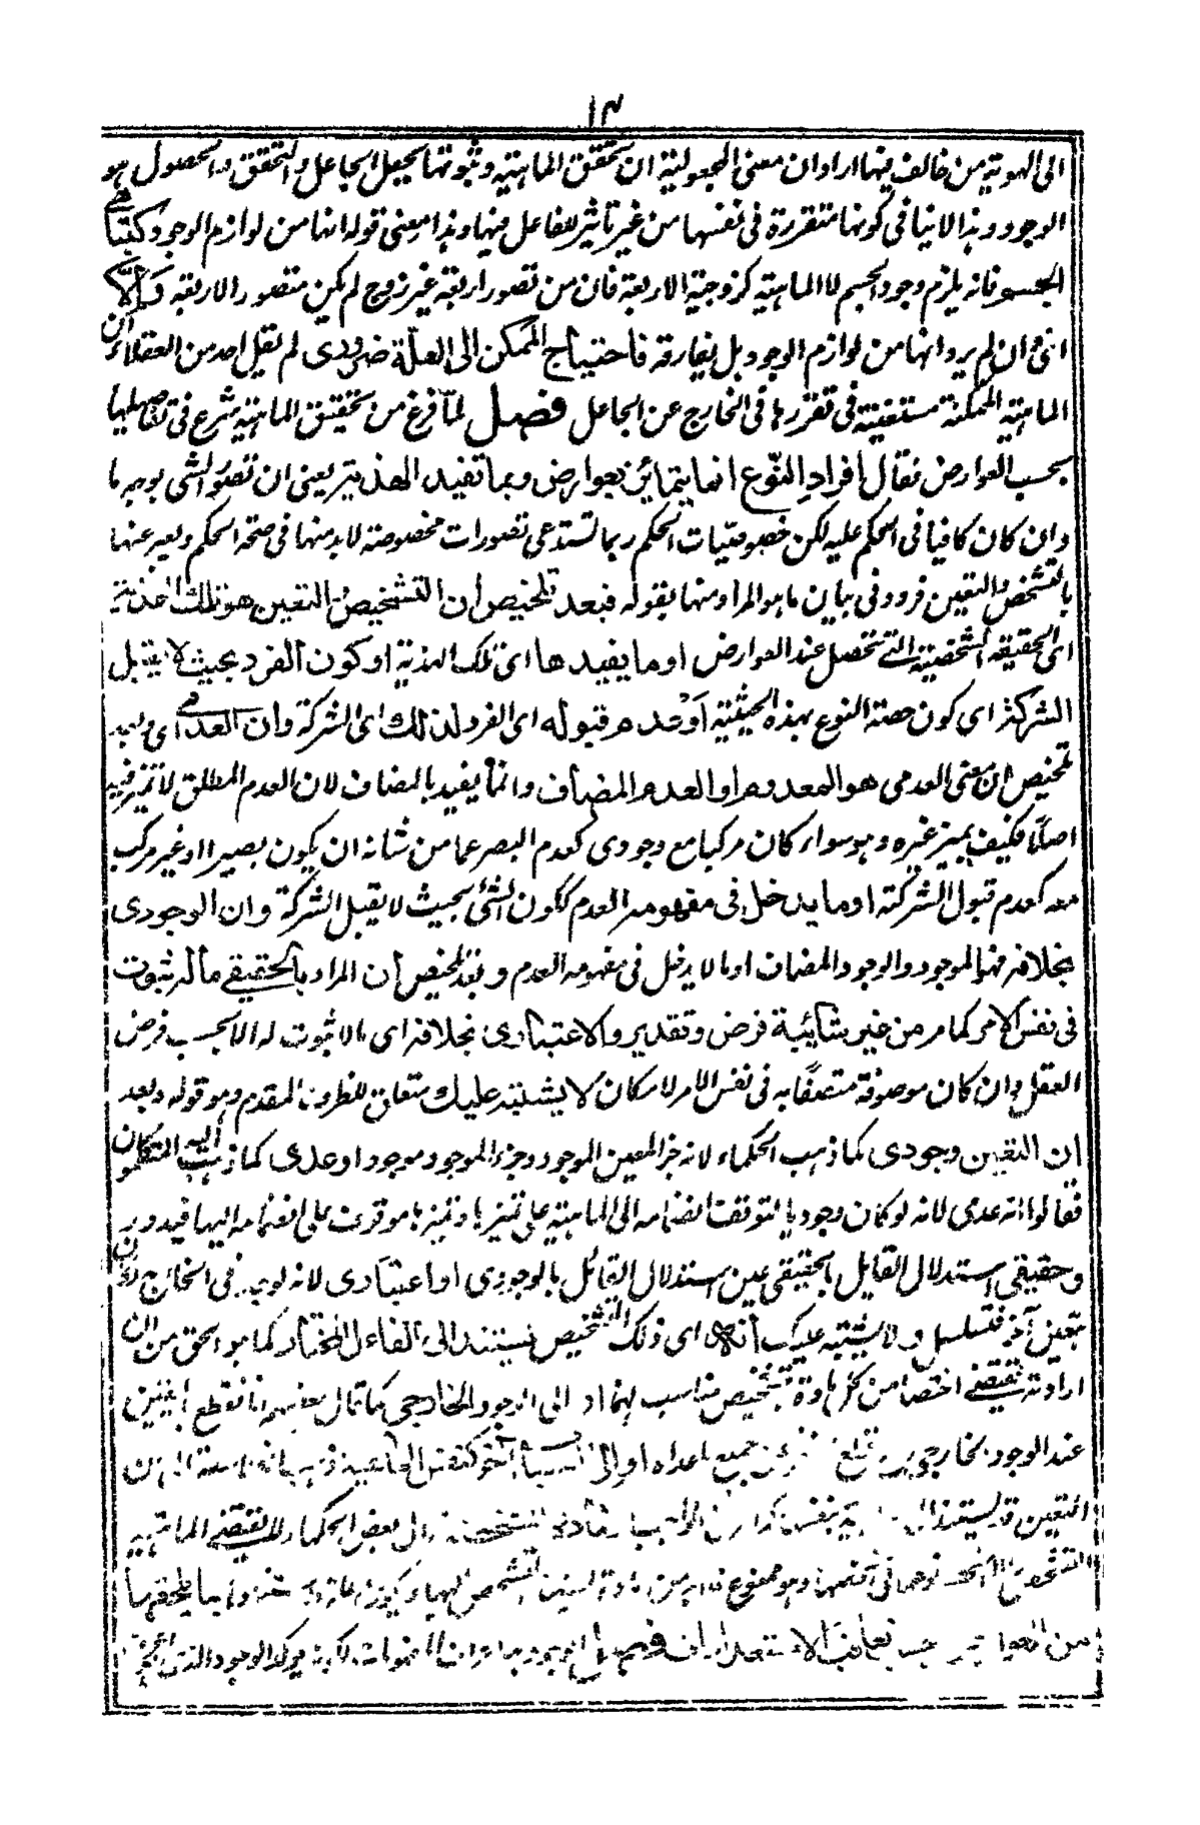 ١٣
الى الهوية من خالف فيها اراد ان معنى المجعولية ان تحقق الماهية وثبوتها بجعل الجاعل والتحقق والحصول هو
الوجود وهذا لا ينافى كونها متقررة فى نفسها من غير تاثير للفاعل فيها وهذا معنى قوله انها من لوازم الوجود كتناهى
الجسم فانه يلزم وجود الجسم لا الماهية كزوجية الاربعة فان من تصور اربعة غير زوج لم يكن متصورا لاربعة وَالّا
اى وان لم يرد انها من لوازم الوجود بل يفارقه فاحتياج الممكن الى العلّة ضرورى لم يقل احد من العقلاء ان
الماهية الممكنة مستغنية فى تقررها فى الخارج عن الجاعل فصل لمّا فرغ من تحقيق الماهية شرع فى تفاصيلها
بحسب العوارض فقال أفراد النّوع انما يتمايز بعوارض وبما تفيد الهذية يعنى ان تصور الشى بوجه ما
وان كان كافيا فى الحكم عليه لكن خصوصيّات الحكم ربما تستدعى تصورات مخصوصة لا بد منها فى صحة الحكم ويعبر عنها
بالتشخص والتعين فردد فى بيان ما هو المراد منها بقوله فبعد تلخيص ان التشخيص التعين هو تلك الهذية
اى الحقيقة الشخصية التى تحصل عند العوارض او ما يفيدها اى تلك الهذية او كون الفرد بحيث لا يقبل
الشركة اى كون حصة النوع بهذه الحيثية اَوْ عدم قبوله اى الفرد لذلك اى الشركة وان العدمى اى وبعد
تلخيص ان معنى العدمى هو المعدوم او العدم المضاف وانما يفيد بالمضاف لان العدم المطلق لا تميز فيه
اصلًا فكيف يميز غيره وهو سواء كان مركبا مع وجودى كعدم البصر عما من شانه ان يكون بصيرا او غير مركب
معه كعدم قبول الشركة او ما يدخل فى مفهومه العدم ككون الشئ بحيث لا يقبل الشركة وان الوجودى
بخلافه فهو الموجود والوجود المضاف او ما لا يدخل فى مفهومه العدم وبعد تلخيص أن المراد بالحقيقے ماله ثبوت
فى نفس الامر كما مر من غير شائبة فرض وتقدير والاعتبارى بخلافه اى ما لا ثبوت له الا بحسب فرض
العقل وان كان موصوفه متصفًا به فى نفس الامر لامكان لا يشتبه عليك متعلق للظرف المقدم وهو قوله وبعد
ان التعين وجودى كما ذهب الحكماء لانه جزء المعين الموجود وجزء الموجود موجود او عدمى كما ذهب اليه المتكلمون
فقالوا انه عدمى لانه لو كان وجوديا لتوقف انضمامه الى الماهية على تميزها وتميزها موقوف على انضمامه اليها فيدور
وحقيقى استدلال القايل بالحقيقى عين استدلال القائل بالوجودى او اعتبارى لانه لو وجد فى الخارج لكان
بتعين آخر فتسلسل ولا يشتبه عليك أنه اى ذلك التشخيص يستند الى الفاعل المختار كما هو الحق من ان
ارادته تقتضے اختصاص كل مادة بتشخيص مناسب لها او الى الوجود الخارجى كما قال بعضهم انا نقطع بتعين
عند الوجود الخارجى جميع ما عداه او الى
التعين قد يستند الى بعض الحكماء
من العوارض بحسب تعاقب الاستعدادات فصل